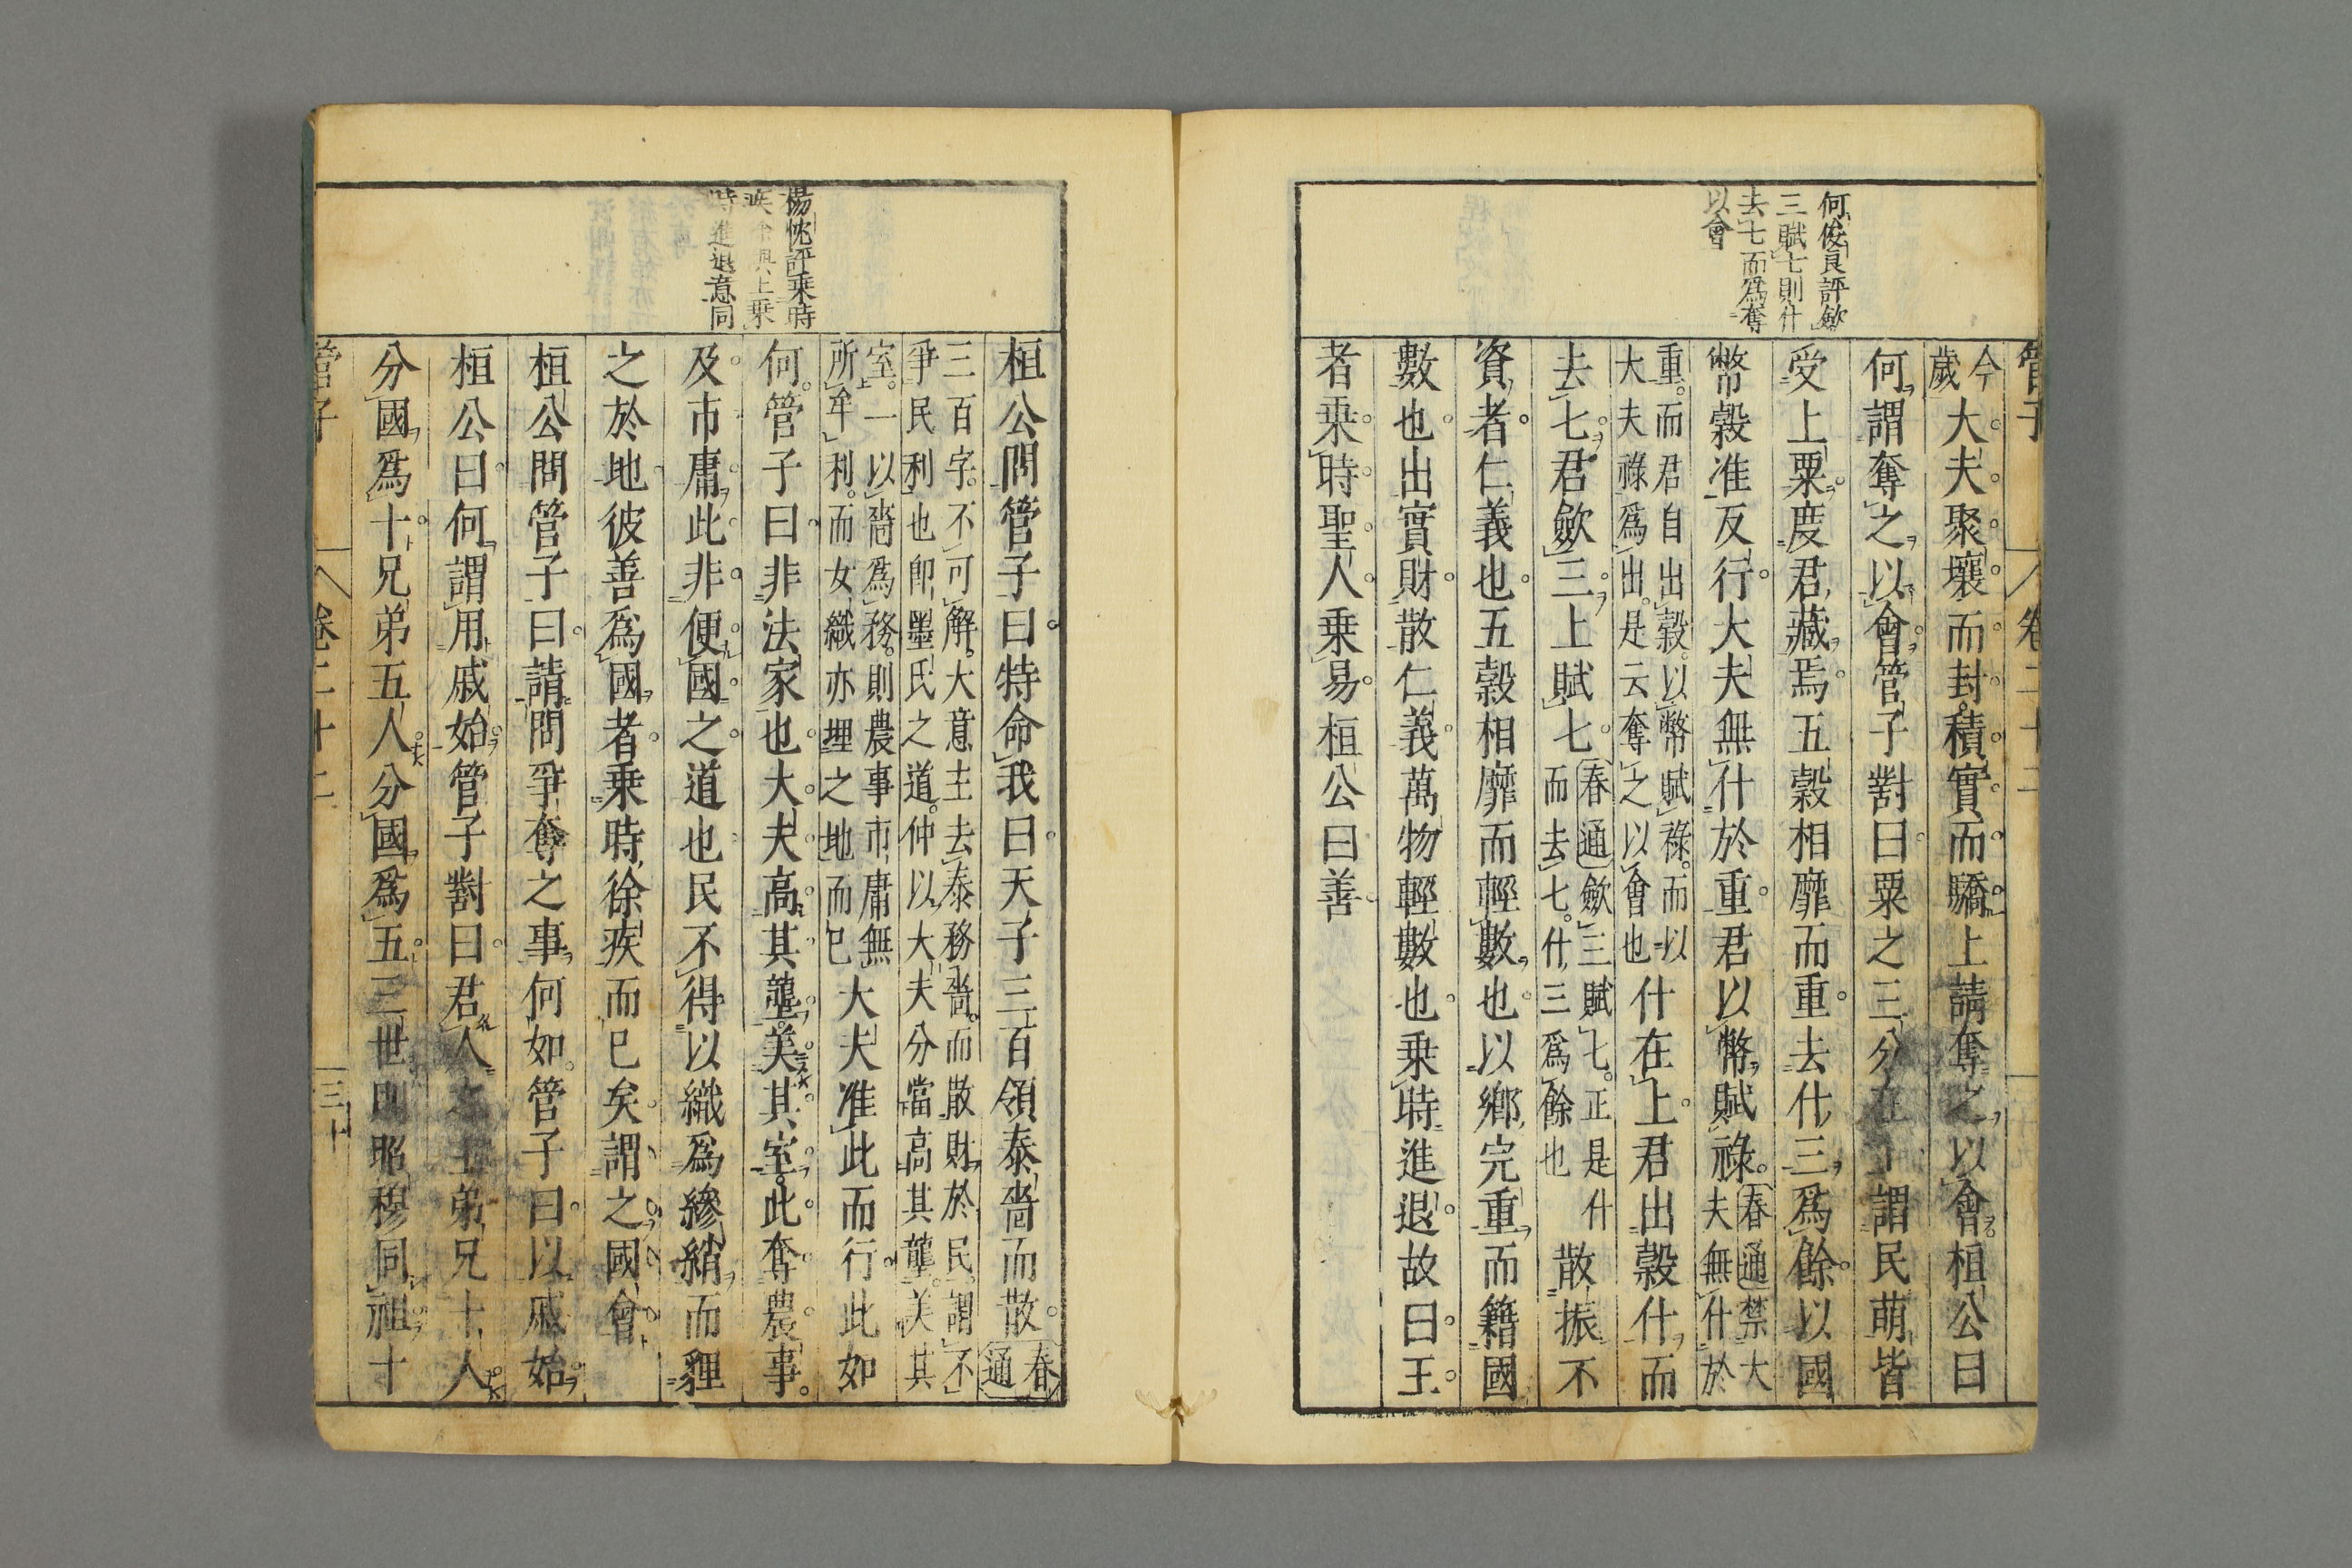 管子
卷二十二
何俊良評歛
三賦七則什
去七而爲奪
以會
今
歲
大夫聚壤而封積實而驕上請奪之以會桓公曰
何謂奪之以會管子對曰粟之三分在上謂民萌皆
受上粟度君藏焉五穀相靡而重去什三爲餘以國
幣穀准反行大夫無什於重君以幣賦祿
春通禁大
夫無什於
重而君自出穀以幣賦祿而以
大夫祿爲出是云奪之以會也
什在上君出穀什而
去七君歛三上賦七
春通歛三賦七正是什
而去七什三爲餘也
散振不
資者仁義也五穀相靡而輕數也以鄉完重而籍國
數也出實財散仁義萬物輕數也乗時進退故曰王
者乗時聖人乗易桓公曰善
楊忱評乗時
疾
上乗
時進退意同
桓公問管子曰特命我曰天子三百領泰嗇而散
春
通
三百字不可解大意主去泰務嗇而散財於民謂不
爭民利也卽墨氏之道仲以大夫分當高其壟美其
室一以嗇爲務則農事市庸無
所牟利而女織亦埋之地而已
大夫准此而行此如
何管子曰非法家也大夫高其壟美其室此奪農事
及市庸此非便國之道也民不得以織爲縿綃而貍
之於地彼善爲國者乗時徐疾而已矣謂之國會
桓公問管子曰請問爭奪之事何如管子曰以戚始
桓公曰何謂用戚始管子對曰君人之主弟兄十人
分國爲十兄弟五人分國爲五三世則昭穆同祖十
管子
卷二十二
三十